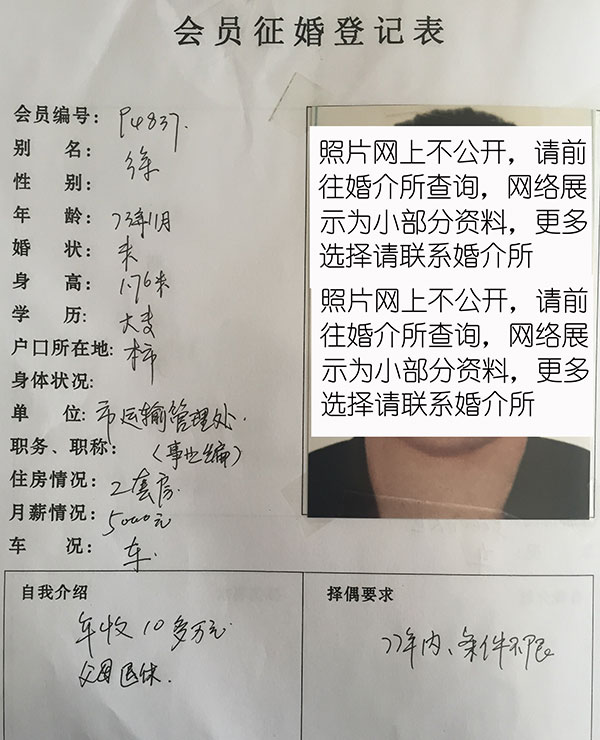 会员征婚登记表
会员编号： P4837.
别 名： 徐
性 别：
年 龄： 73年11月
婚 状： 未
身 高： 1.76米
学 历： 大专
户口所在地:
身体状况:
单 位: 市运输管理处.
职务、职称: （事业编）
住房情况： 2套房.
月薪情况： 5000元
车 况： 车.
照片网上不公开，请前
往婚介所查询，网络展
示为小部分资料，更多
选择请联系婚介所
照片网上不公开，请前
往婚介所查询，网络展
示为小部分资料，更多
选择请联系婚介所
自我介绍
年收10多万元
父母退休.
择偶要求
77年内、条件不限